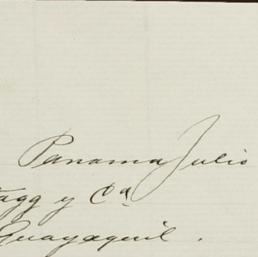 Panama Julio
tagg y Cª
Guayaquil.